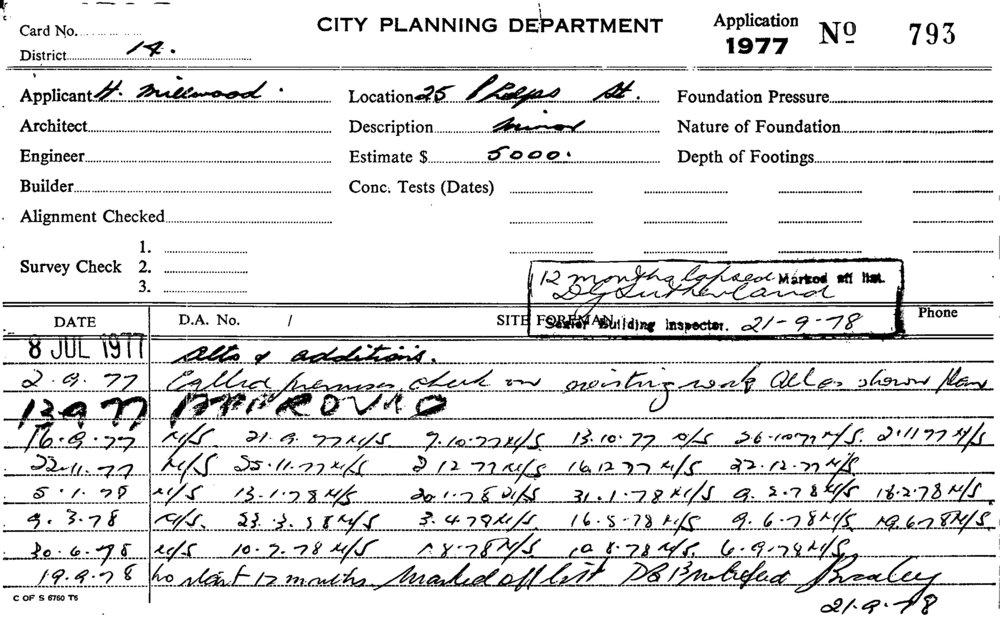 Card No.
CITY PLANNING DEPARTMENT
Application 1977 No 793
District 14.
Applicant H. Millwood. Location 25 Phelps St. Foundation Pressure
Architect Description minor Nature of Foundation
Engineer Estimate $ 5000. Depth of Footings
Builder Conc. Tests (Dates)
Alignment Checked
Survey Check 1. 2. 3.
12 months lapsed Marked off list.
D G Sutherland
Senior Building Inspector. 21-9-78
DATE D.A. No. / SITE FOREMAN Phone
8 JUL 1977 Alts & additions.
2.9.77 Called premises, check on existing work All as shown plan
13 9 77 APPROVED
16.9.77 N/S 21.9.77 N/S 7.10.77 N/S 13.10.77 N/S 26.10.77 N/S. 2.11.77 N/S
22.11.77 N/S 25.11.77 N/S 2 12 77 N/S 16.12.77 N/S 22.12.77 N/S
5.1.78 N/S 13.1.78 N/S 20.1.78 N/S 31.1.78 N/S 9.2.78 N/S 16.2.78 N/S
9.3.78 N/S. 23.3.78 N/S 3.4.78 N/S 16.5.78 N/S 9.6.78 N/S 19.6.78 N/S
30.6.78 N/S 10.7.78 N/S 1.8.78 N/S 10.8.78 N/S. 6.9.78 N/S
19.9.78 no start 12 months. Marked off list
21.9.78
C OF S 6760 T5